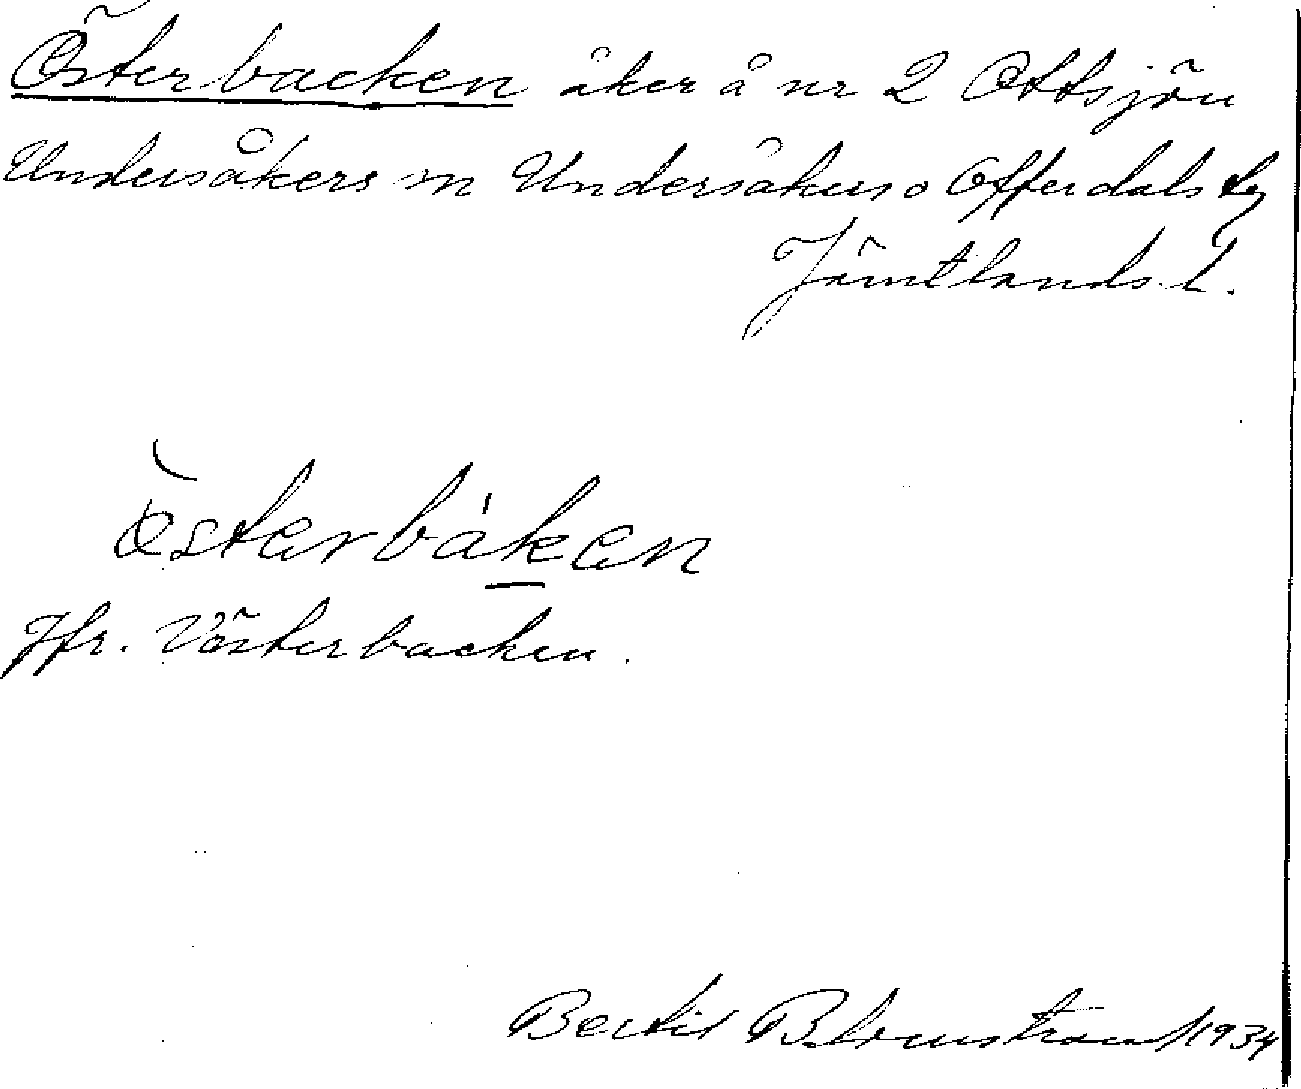 Österbacken åker å nr 2 Ottsjön
Undersåkers sn Undersåkers o Offerdals tg
Jämtlands l.
österbáken
Jfr. Västerbacken.
Bertil Blomström/1934